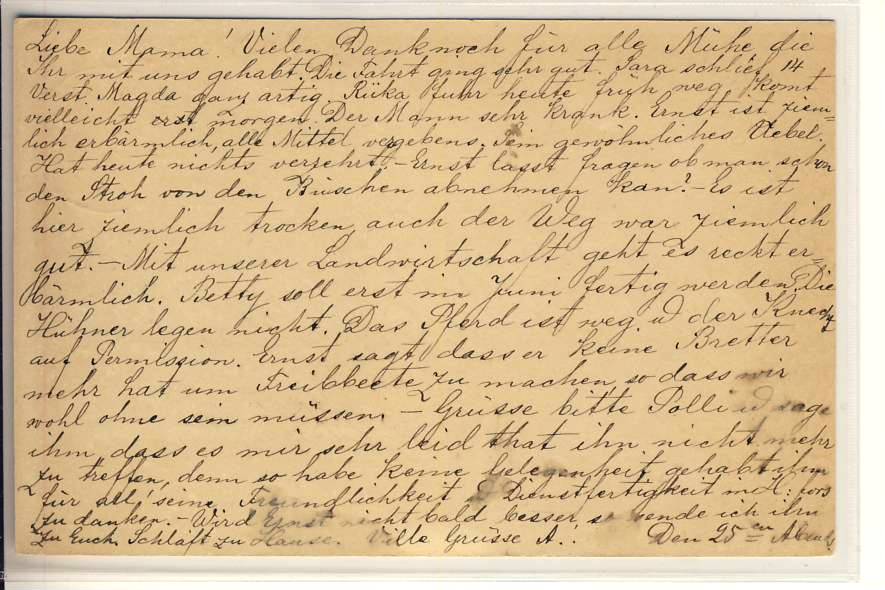 Liebe Mama! Vielen Dank noch für alle Mühe die
Ihr mit uns gehabt. Die Fahrt ging sehr gut. Sara schlief 14
Verst. Magda ganz artig. Riika fuhr heute früh weg, komt
vielleicht erst morgen. Der Mann sehr krank. Ernst ist ziem=
lich erbärmlich, alle Mittel vergebens. Sein gewöhnliches Uebel.
Hat heute nichts verzehrt. – Ernst lässt fragen ob man schon
den Stroh von den Büschen abnehmen kan? – Es ist
hier ziemlich trocken, auch der Weg war ziemlich
gut. – Mit unserer Landwirtschaft geht es reckt er=
bärmlich. Betty soll erst im Juni fertig werden. Die
Hühner legen nicht. Das Pferd ist weg u der Knecht
auf Permission. Ernst sagt dass er keine Bretter
mehr hat um Treibbeete zu machen, so dass wir
wohl ohne sein müssen. – Grüsse bitte Polli u sage
ihm dass es mir sehr leid that ihn nicht mehr
zu treffen, denn so habe keine Gelegenheit gehabt ihm
für all' seine Freundlichkeit u Dienstfertigkeit in
zu danken. – Wird Ernst nicht bald besser, so sende ich ihn
zu Euch. Schläft zu Hause. Viele Grüsse A. Den 25 en Abends